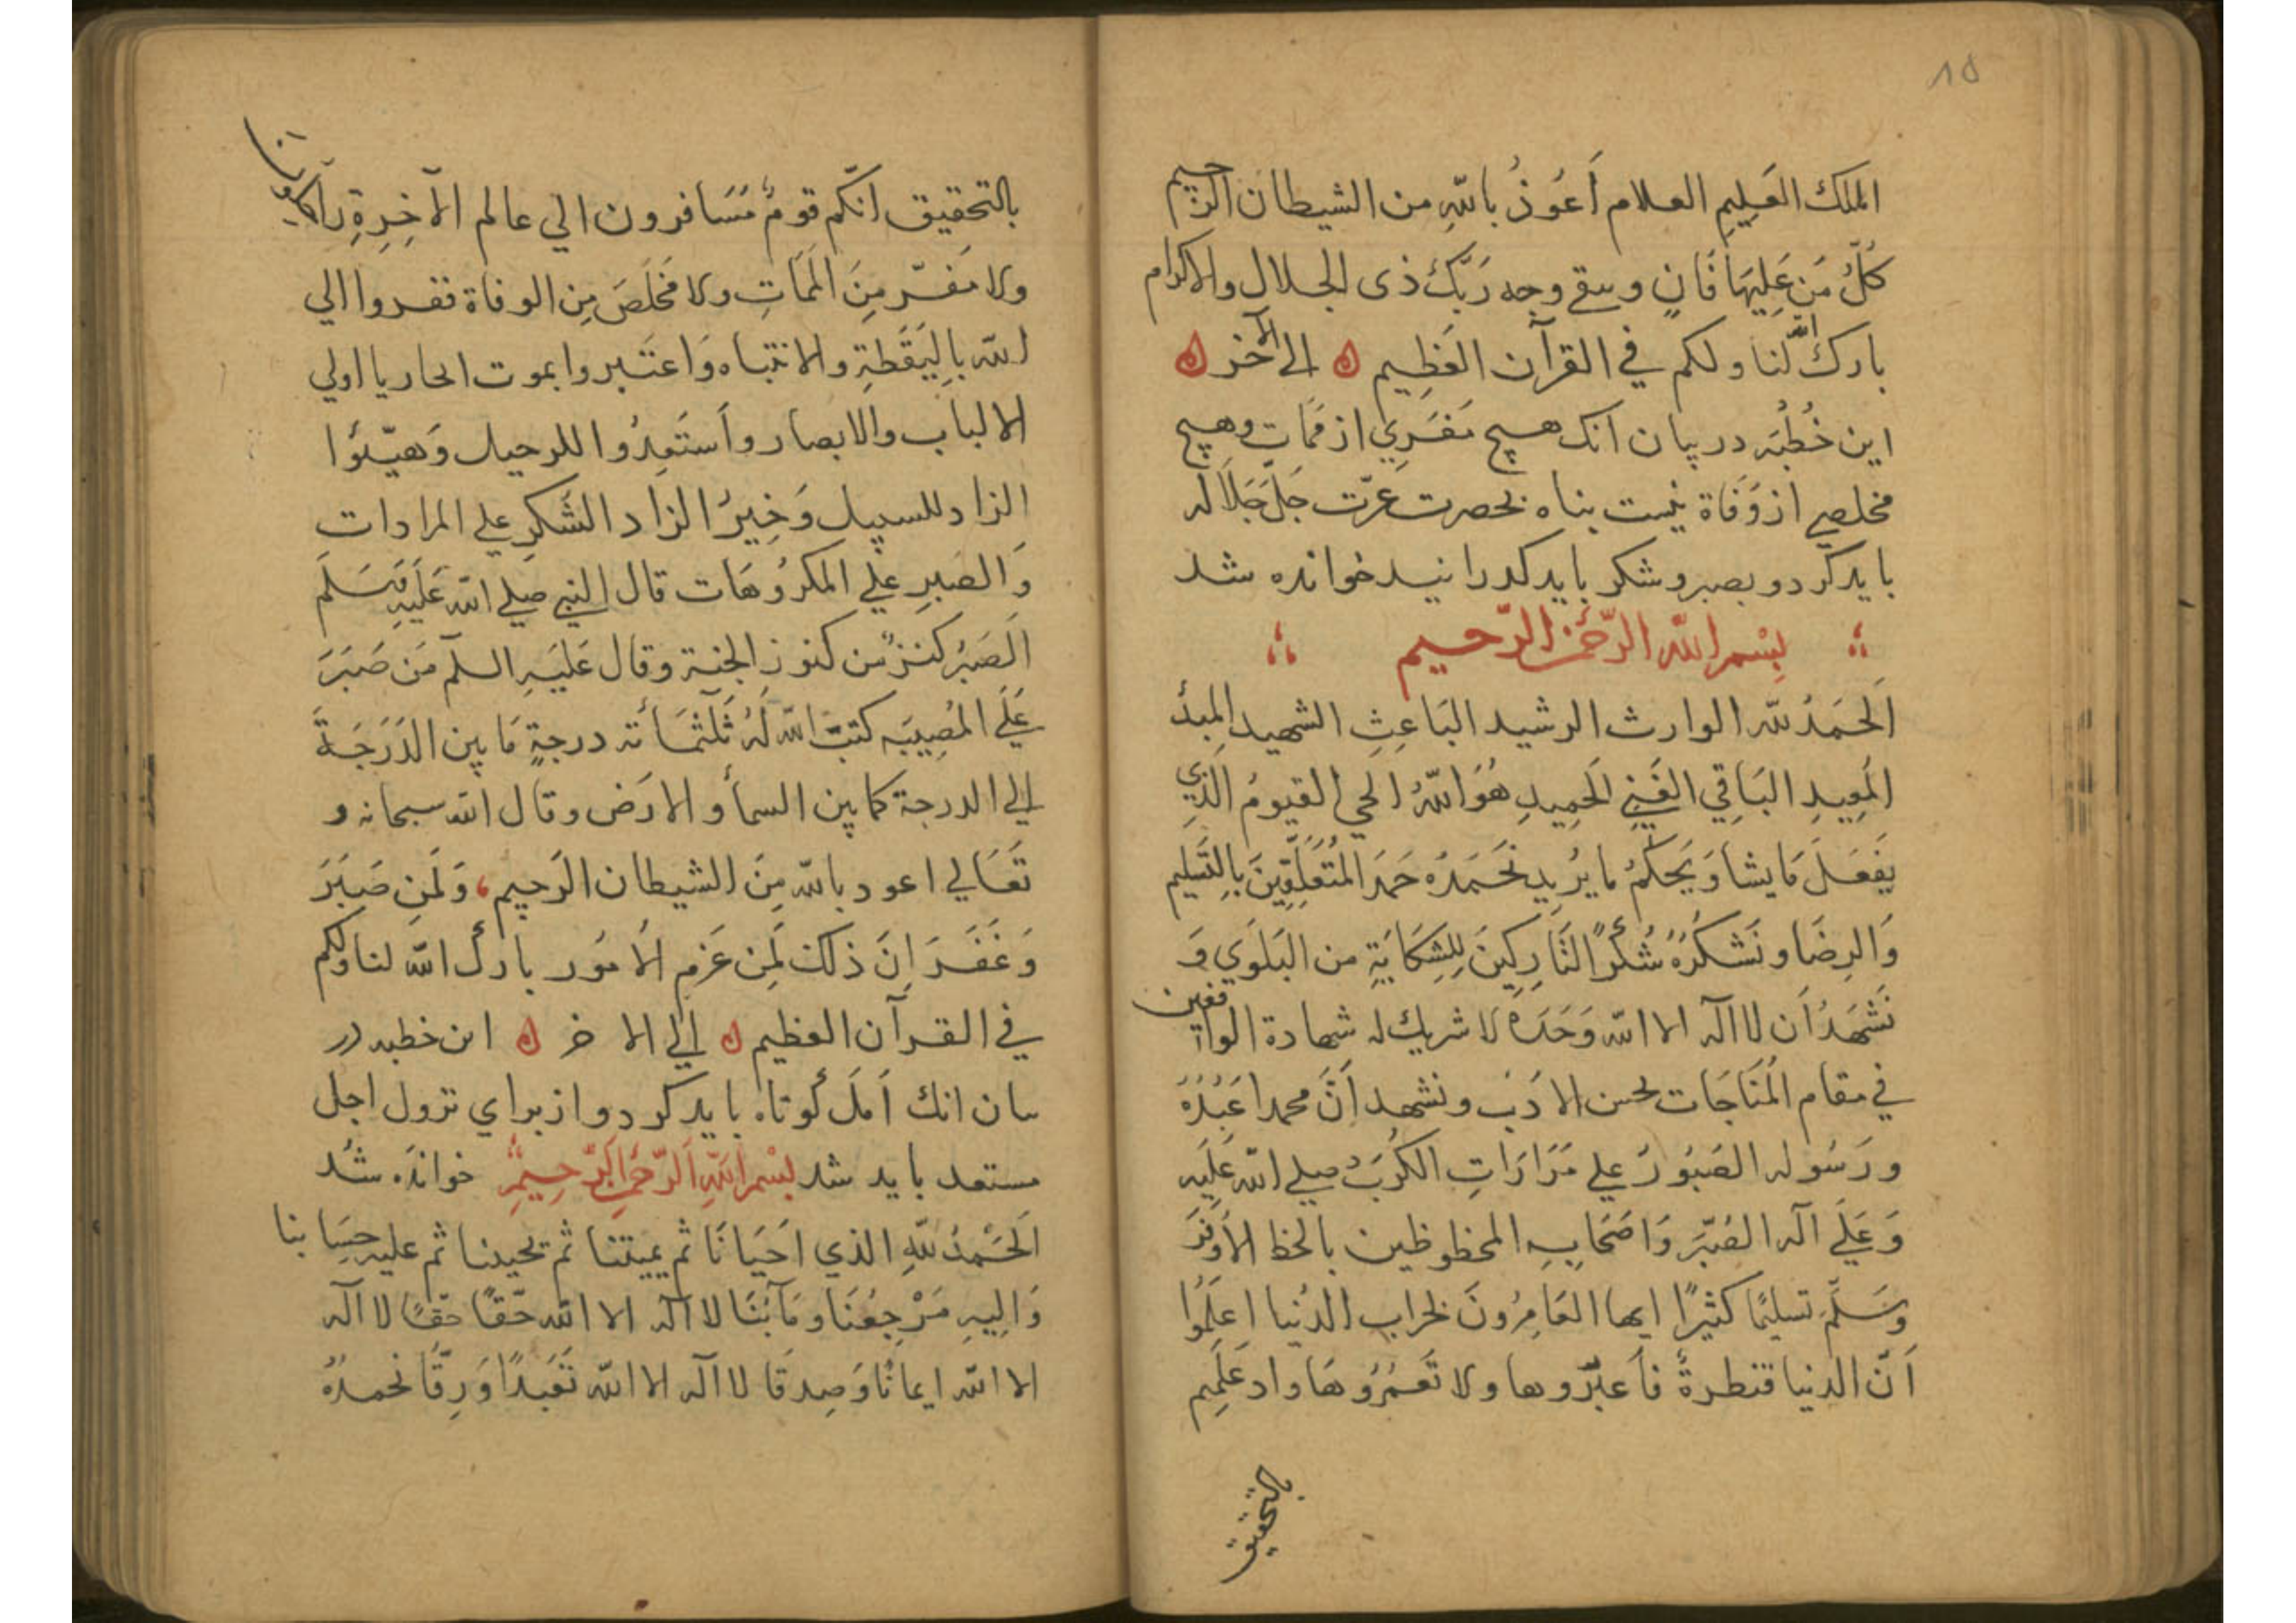 ١٥
الملك العَلِيمِ العلام أَعُوذُ بِاللّهِ من الشيطان الرجيم
كُلُّ مَن عَلَيهَا فَانٍ ويبقى وجه رَبِّكَ ذى الجلال والاكرام
بارك اللّه لَنا ولكم في القرآن العَظِيم الى الآخر
اين خُطبَه در بيان آنك هيچ مَفَرِي از مَمَات وهيچ
مخلصي از وَفَاة نيست پناه بحضرت عزّت جَلَّ جَلَالَه
بايد كرد و بصبر و شكر بايد كذرانيد خوانده شد
بِسْمِ اللّه الرَّحْمن الرَّحيم
اَلحَمدُ للّه الوارث الرشيد البَاعِثِ الشهيد المبدئ
المُعِيدِ البَاقِي الغَنِيِ الحَمِيدِ هُوَ اللّهُ الحي القيومُ الَّذِي
يَفعَلُ مَا يشَا وَيَحكُمُ ما يُرِيد نَحَمدُه حَمَد المُتَعَلِّقِينَ بِالتَّسلِيم
وَالرِضَا و نَشكُرُهُ شُكرًا لتَّارِكِينَ لِلشِكَايَةِ من البَلوَي وَ
نَشهَدُ اَن لا اله الا اللّه وَحَدَهُ لا شريك له شهادة الواقفين
في مقام المُنَاجَات بحسن الادَب و نشهد اَنَّ محمدا عَبدُهُ
ورَسُوله الصَبُورُ علي مَرَارَاتِ الكُرَب صلى اللّه عَلَيه
وَعَلَي آله الغُبَّرِ وَاصَحَابِهِ المحظوظين بالحظ الاَوفَرَ
وَسَلَّمَ تسليمًا كثيرًا ايها العَامِرُونَ لخراب الدُنيا اِعلَمُوا
اَنَّ الدنيا قنطرةٌ فَاعبُرُوها ولا تَعمُرُوهَا واد عَلَيِم
بالتحقيق
بالتحقيق اَنَّكم قومٌ مُسَافرون الي عالم الآخِرَةِ رَاكبونا
ولا مَفَرّ مِنَ المَمَاتِ ولا مَخلَصَ مِن الوفاة ففروا الي
اللّه باليَقَظَةِ والانتباه وَاعتَبروا بموت الحار يا اولي
الالباب والابصار وَاستَعِدُوا للرحيل وَهيِّئُوا
الزاد للسبيل وَخَيرُ الزاد الشكرِ علي المرادات
وَالصَبرِ علي المكروُهَات قال النبي صلي اللّه عَلَيهِ وَسَلَّمَ
اَلصَبرُ كنزٌ من كنوز الجنة وقال عَلَيهِ السلم مَن صَبَرَ
عَلَي المُصِيبَه كتبَ اللّه لَهُ ثَلَثمَأئة درجةٍ مَا بين الدَرَجَةَ
الي الدرجة كما بين السمأ و الارَض وقال اللّه سبحانه و
تَعَالي اعود باللّه مِنَ الشيطان الرَجيم وَلَمَن صَبَرَ
وَغَفَرَ اِنَّ ذَلكَ لَمِن عَزمِ الاُمُور بارك اللّه لنا ولكم
في القرآن العظيم الي الا خر اىن خطبه در
ىىان انك اَمَل كُوتاه بايد كرد و از براي نزول اجل
مستعد بايد شد بِسْمِ اللَّهِ اَلرَّحْمنِ الرَّحِيمِ خوانده شُد
اَلحَمْدُ للّهِ الذي اَحيَانَا ثُم يميتنا ثم يحيينا ثم عليه حِسَابنا
وَالَيهِ مَرْجِعُنَا ومَآبُنَا لا اله الا اللّه حَقًا حَقًا لا اله
الا اللّه ايمانًا وَصِدقًا لا اله الا اللّه تَعَبدًا وَرِقًّا نحمدُهُ